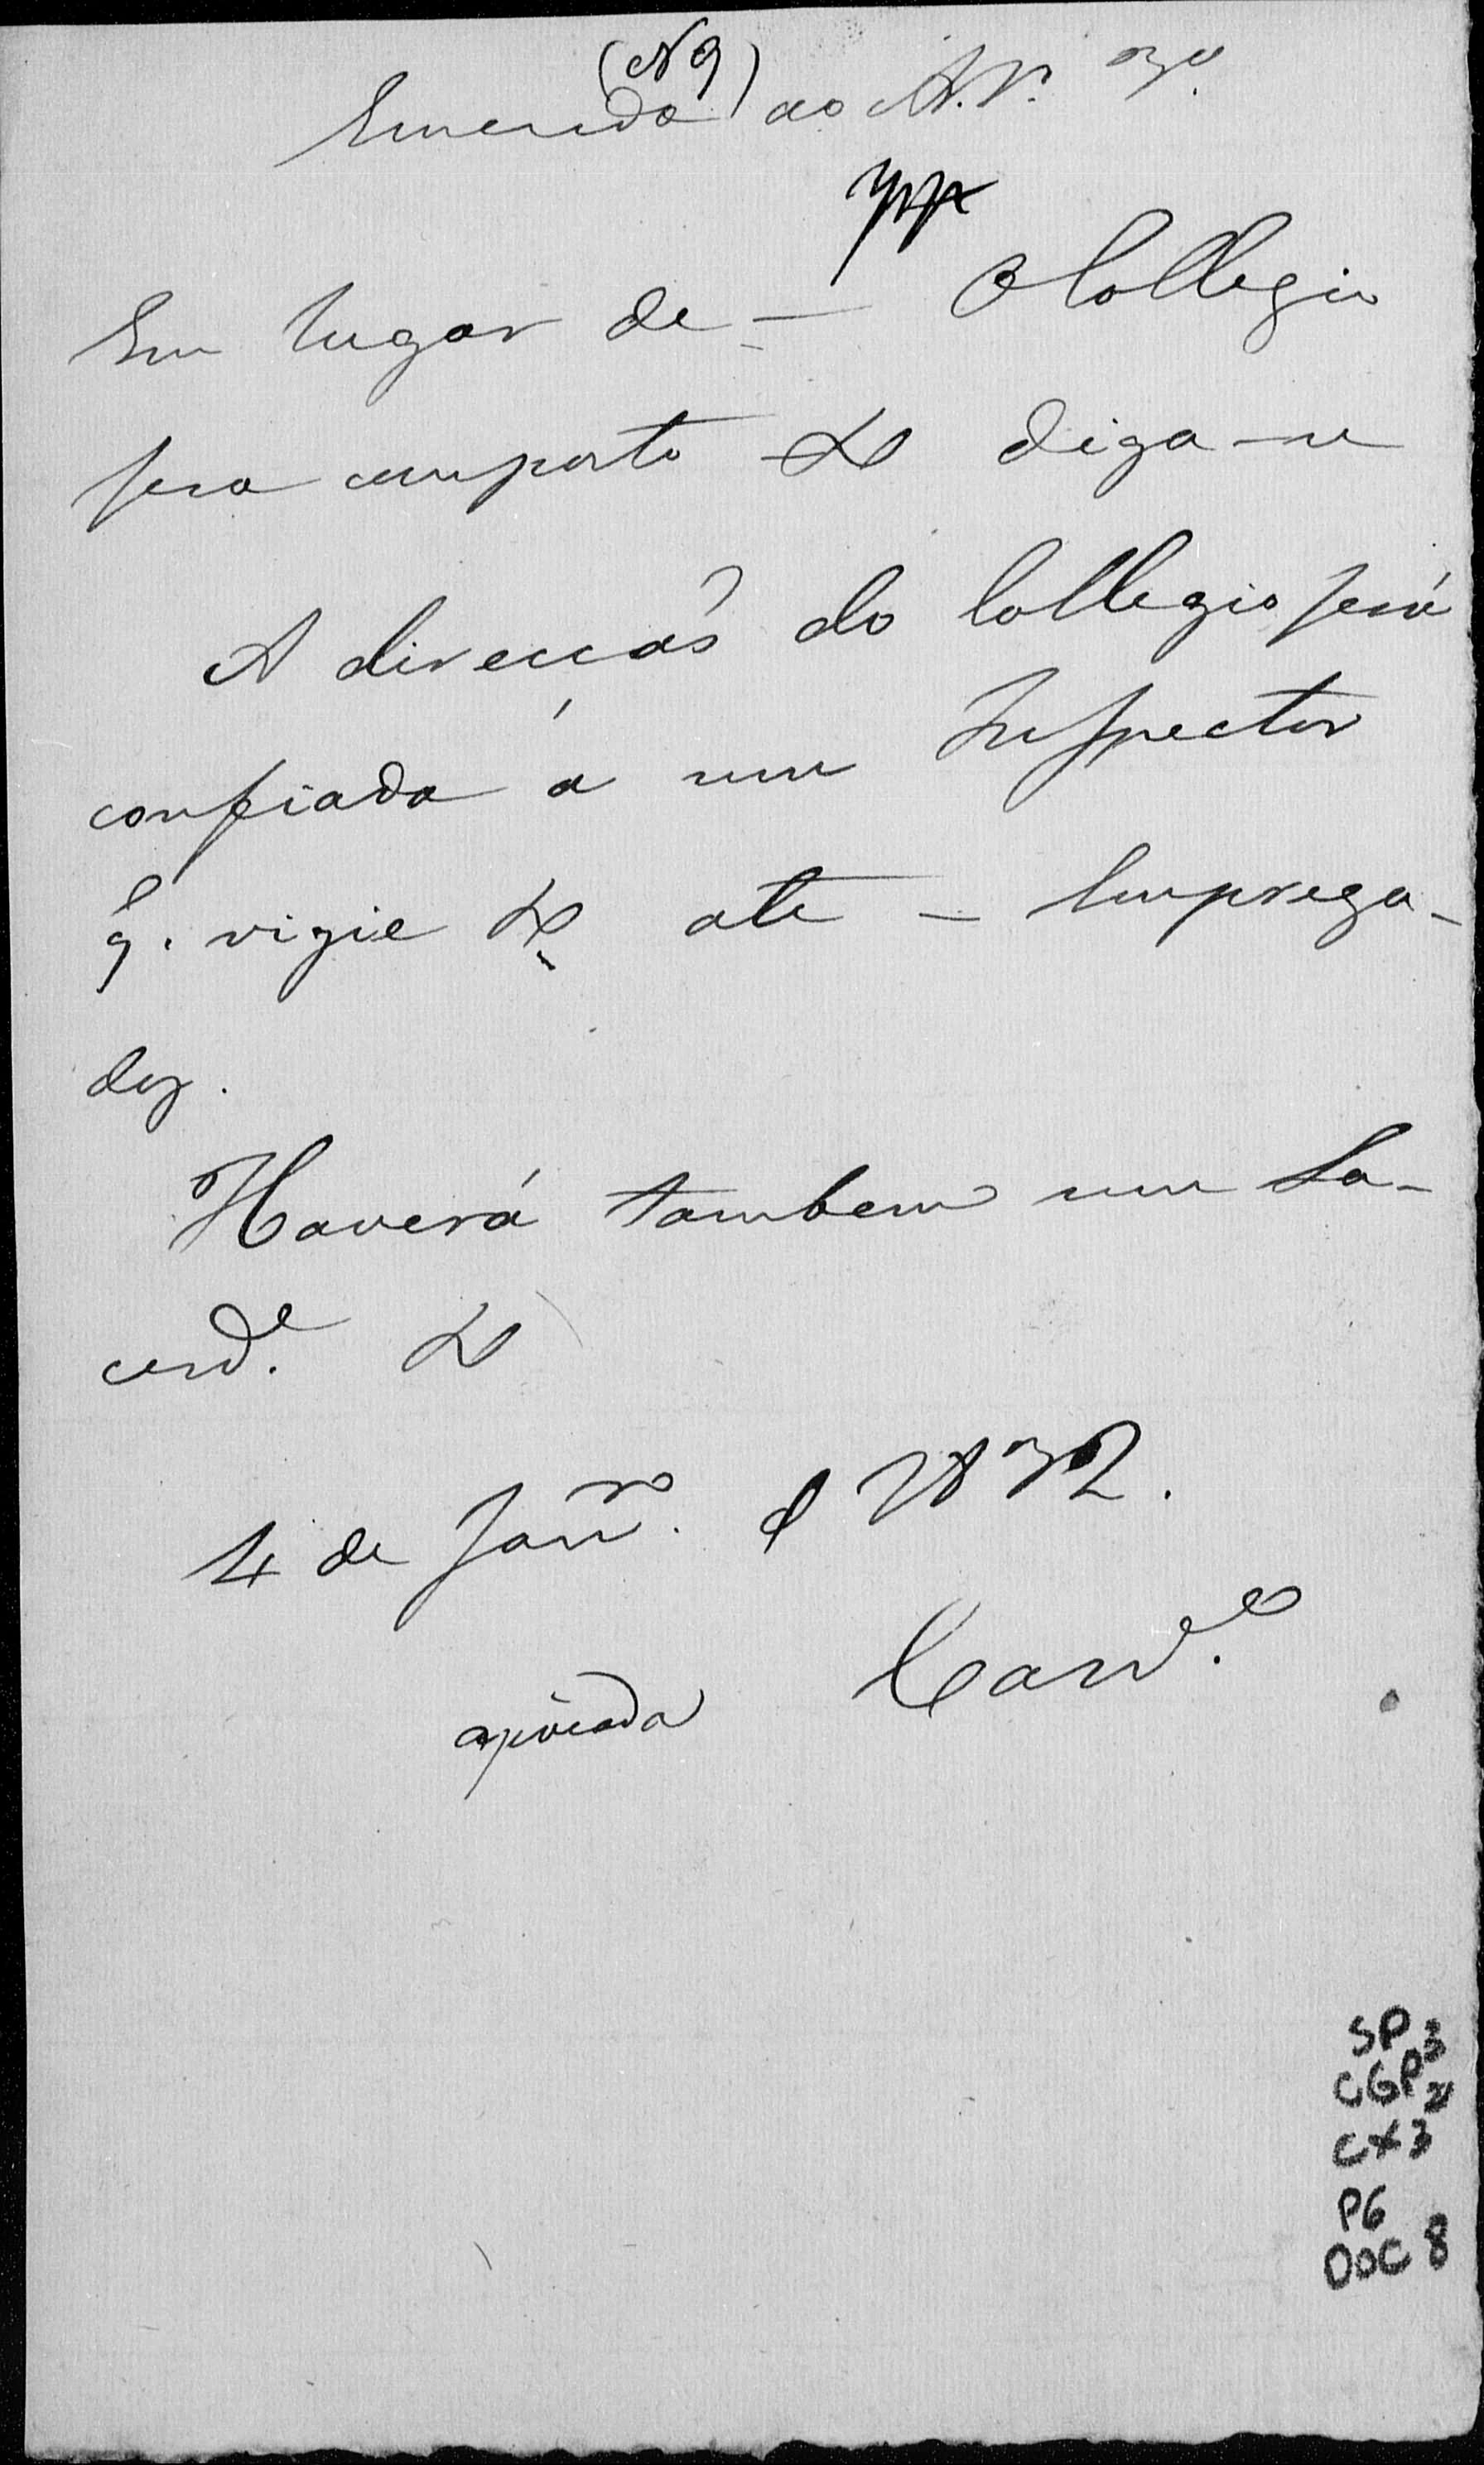 (N 9)
Emenda ao Ar. 3º
Em lugar de — O Collegio
sera composto &. diga-se
A direccaõ do Collegio será
confiada á um Inspector
q. vigie &. ate — Emprega-
dos.
Haverá tambem um Sa-
cerd.e &.
4 de Janr.o d 1832.
Card.o
apoiada
SP3
CGP2
CX3
P6
DOC 8